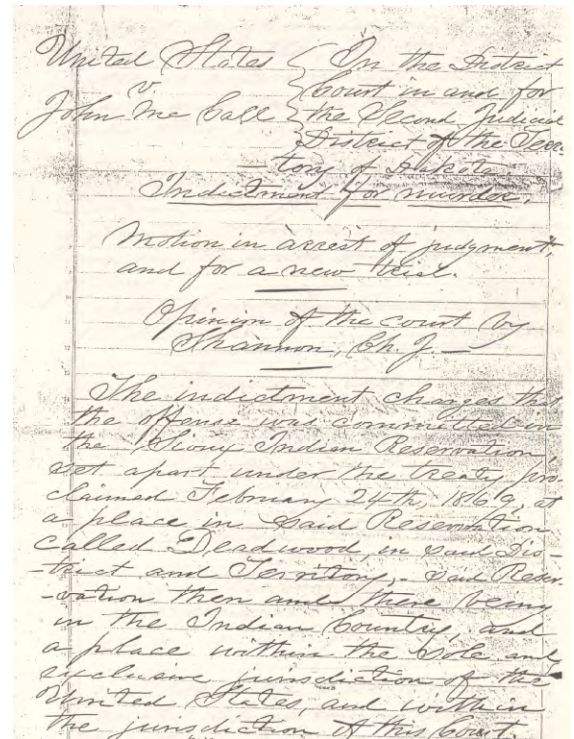 United States
v
John Mc Call
In the District
Court in and for
the Second Judicial
District of the Terri-
tory of Dakota.
Indictment for murder.
Motion in arrest of judgment,
and for a new trial.
Opinion of the court by
Shannon, Ch. J. —
The indictment charges that
the offense was committed in
the Sioux Indian Reservation,
set apart under the treaty pro-
claimed February 24th, 1869, at
a place in said Reservation
called Deadwood, in said Dis-
-trict and Territory,- said Reser-
-vation then and there being
in the Indian Country, and
a place within the sole and
exclusive jurisdiction of the
United States, and within
the jurisdiction of this Court.